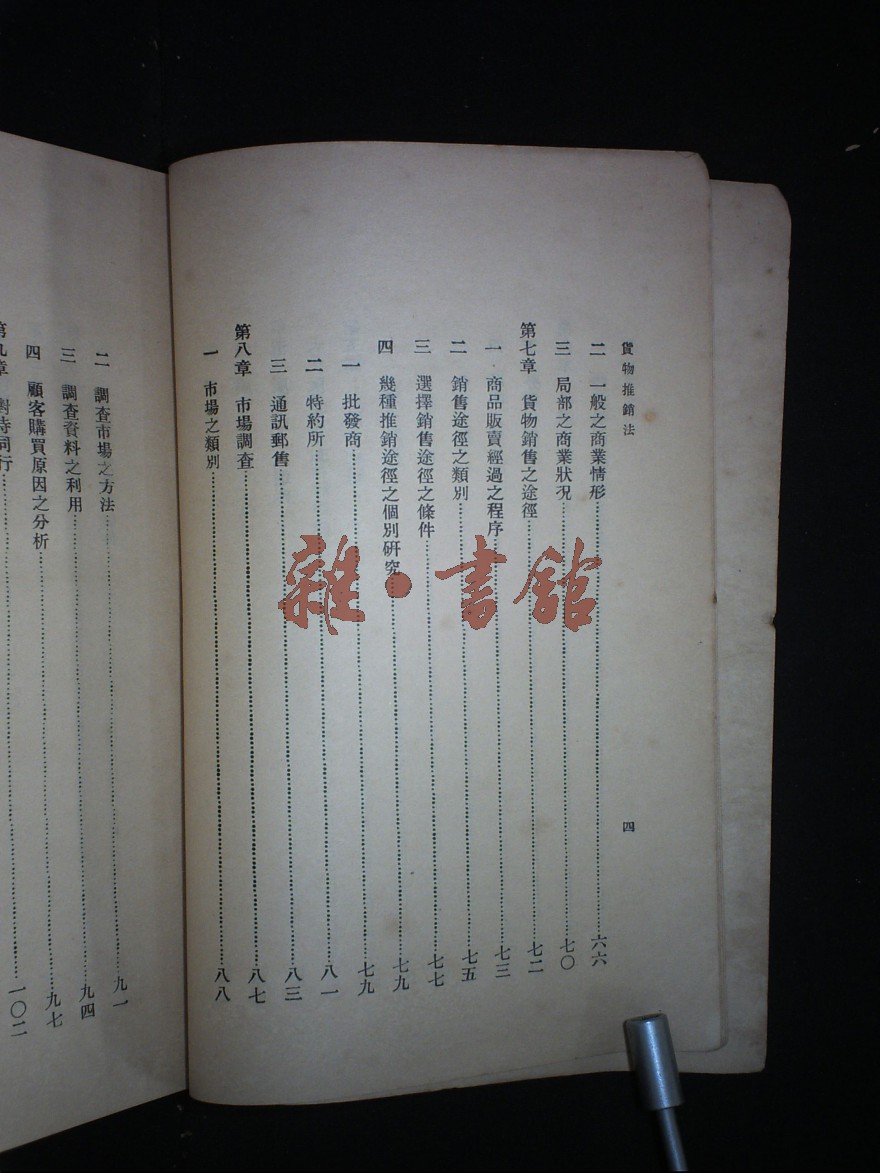 貨物推銷法
四
二 一般之商業情形 六六
三 局部之商業狀况 七〇
第七章 貨物銷售之途徑 七二
一 商品販賣經過之程序 七三
二 銷售途徑之類別 七五
三 選擇銷售途徑之條件 七七
四 幾種推銷途徑之個別研究 七九
一 批發商 七九
二 特約所 八一
三 通訊郵售 八三
第八章 市場調查 八七
一 市場之類別 八八
二 調查市場之方法 九一
三 調查資料之利用 九四
四 顧客購買原因之分析 九七
第九章 對待同行 一〇二
雜·書館